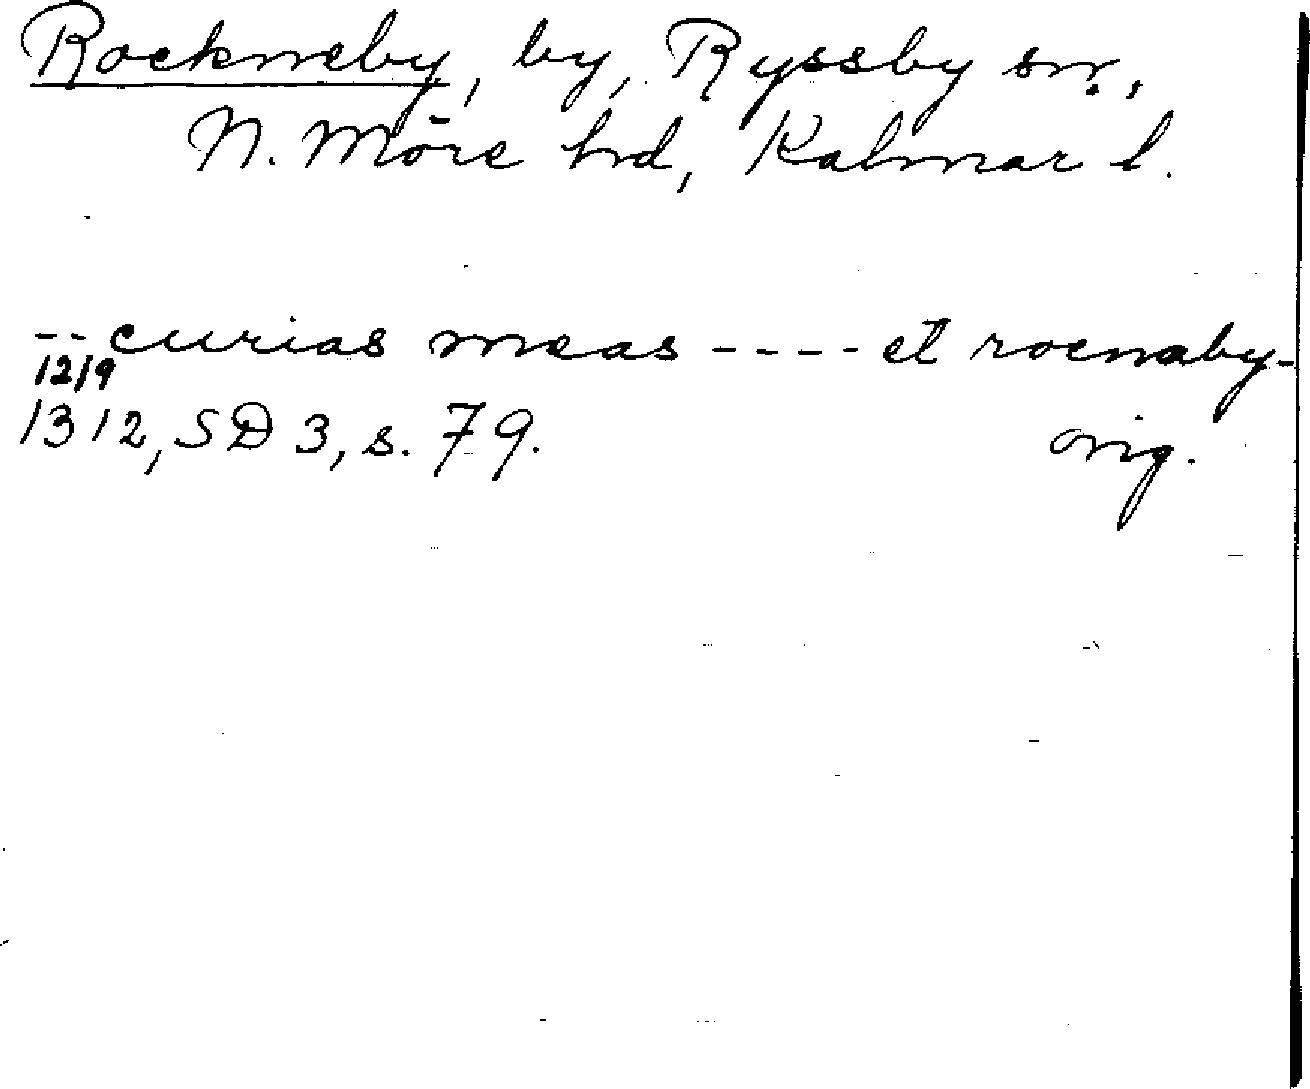 Rockneby, by, Ryssby sn,
N. Möre hd, Kalmar l.
-- curias meas ---- et rocnaby -
12/9
1312, SD 3, s. 79. orig.